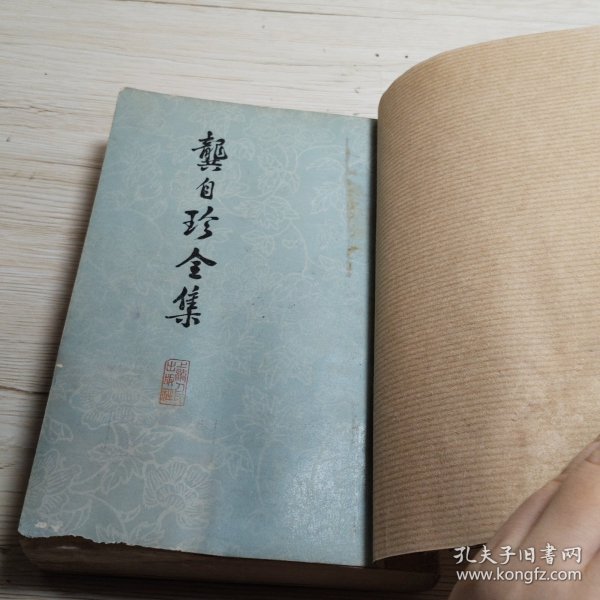 龔自珍全集
上海人民
出版社
孔夫子旧书网
www.kongfz.com